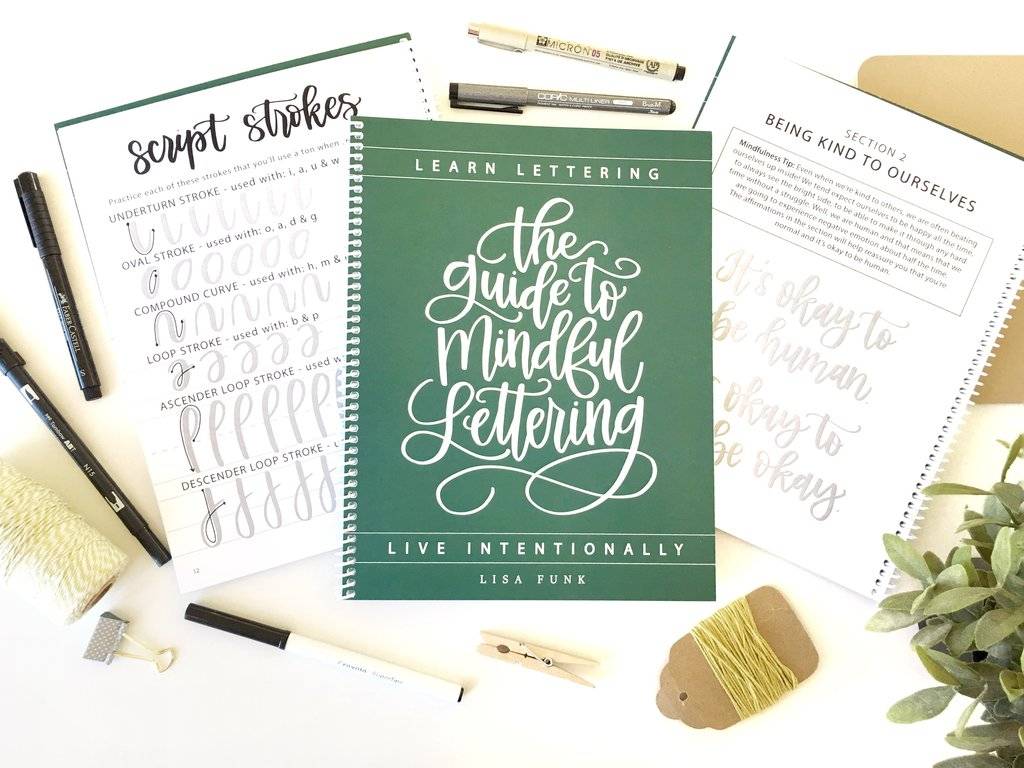 script strokes
Practice each of these strokes that you'll use a ton when
UNDERTURN STROKE - used with: i, a, u & w
OVAL STROKE - used with: o, a, d & g
COMPOUND CURVE - used with: h, m &
LOOP STROKE - used with: b & p
ASCENDER LOOP STROKE - used w
DESCENDER LOOP STROKE -
12
LEARN LETTERING
the
guide to
Mindful
Lettering
LIVE INTENTIONALLY
LISA FUNK
SECTION 2
BEING KIND TO OURSELVES
Mindfulness Tip: Even when we're kind to others, we are often beating
ourselves up inside! We tend expect ourselves to be happy all the time,
to always see the bright side, to be able to make it through any hard
time without a struggle. Well, we are human and that means that we
are going to experience negative emotion about half the time.
The affirmations in the section will help reassure you that you're
normal and it's okay to be human.
It's okay to
be human.
okay to
be okay.
MICRON 05
COPIC MULTI LINER
BrushM
FABER-CASTELL
S
Tombow ABT
N15
Crayola SuperTips